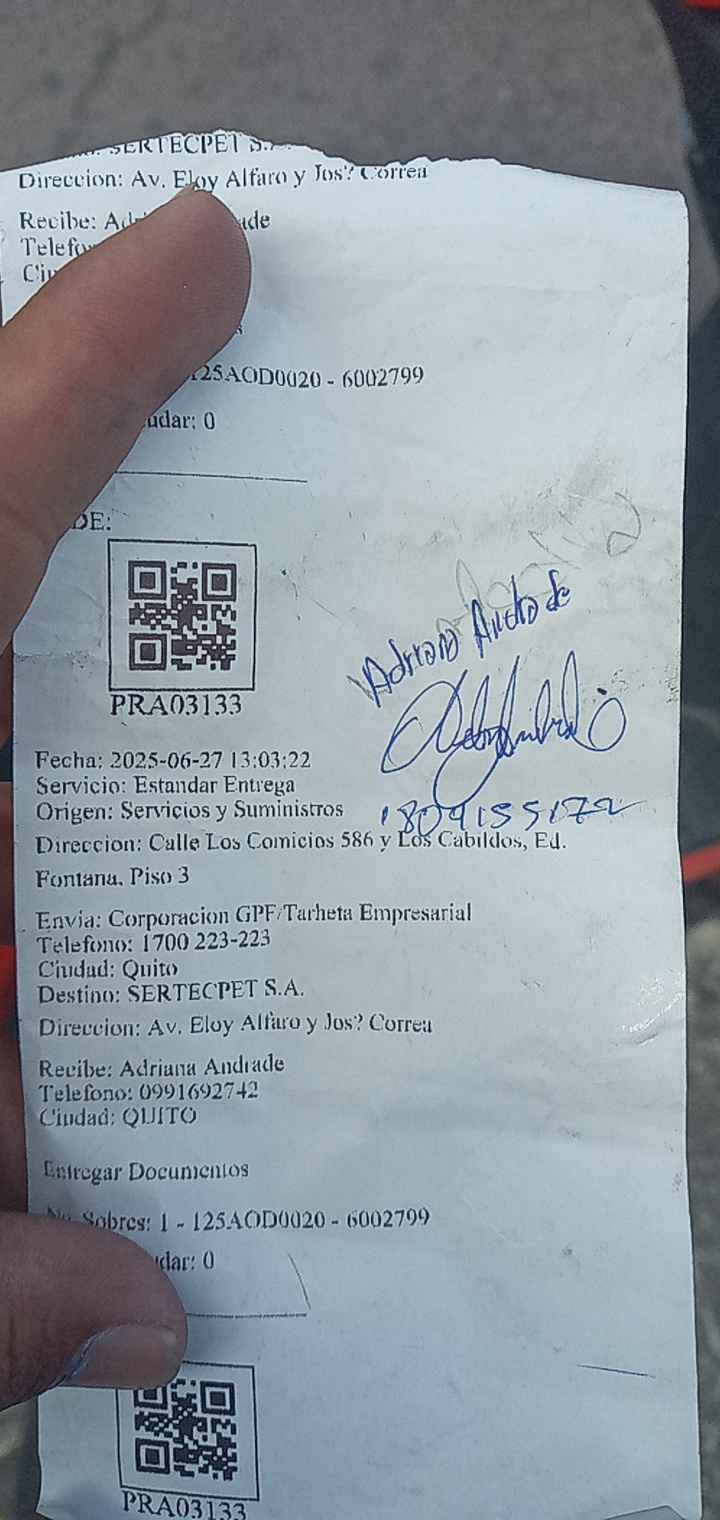 SERTECPET S.A.
Direccion: Av. Eloy Alfaro y Jos? Correa
Recibe:
125AOD0020 - 6002799
0
DE:
PRA03133
Adriana Andrade
Fecha: 2025-06-27 13:03:22
Servicio: Estandar Entrega
Origen: Servicios y Suministros
1804155172
Direccion: Calle Los Comicios 586 y Los Cabildos, Ed.
Fontana. Piso 3
Envia: Corporacion GPF/Tarheta Empresarial
Telefono: 1700 223-223
Ciudad: Quito
Destino: SERTECPET S.A.
Direccion: Av. Eloy Alfaro y Jos? Correa
Recibe: Adriana Andrade
Telefono: 0991692742
Ciudad: QUITO
Entregar Documentos
No Sobres: 1 - 125AOD0020 - 6002799
0
PRA03133